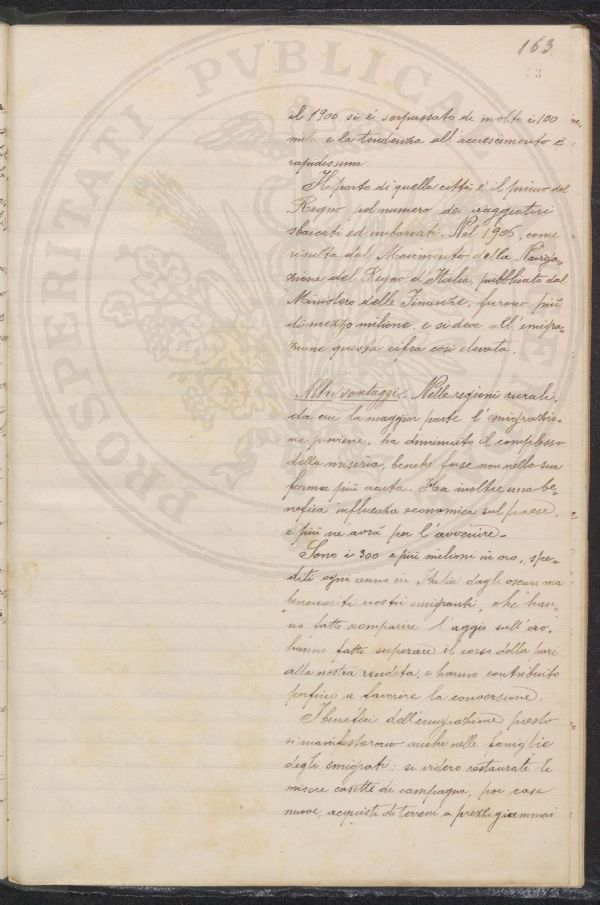 163
il 1900 si è sorpassato di molto i 100
mila e la tendenza all'accrescimento è
rapidissima.
Il porto di quella città è il primo del
Regno pel numero dei viaggiatori
sbarcati ed imbarcati. Nel 1906, come
risulta dal Movimento della Naviga=
zione del Regno d'Italia, pubblicato dal
Ministero delle Finanze, furono più
di mezzo milione, e si deve all'emigra=
zione questa cifra così elevata.
Altri vantaggi. Nelle regioni rurali,
da cui la maggior parte l'emigrazio=
ne proviene, ha diminuito il complesso
della miseria, benchè forse non nella sua
forma più acuta. Ha inoltre una be=
nefica influenza economica sul paese,
e più ne avrà per l'avvenire.
Sono i 300 e più milioni in oro, spe=
diti ogni anno in Italia dagli oscuri ma
benemeriti nostri emigranti, che han=
no fatto scomparire l'aggio sull'oro,
hanno fatto superare il corso della pari
alla nostra rendita, e hanno contribuito
perfino a favorire la conversione.
I benefici dell'emigrazione presto
si manifestarono anche nelle famiglie
degli emigrati: si videro restaurate le
misere casette di campagna, poi case
nuove, acquisti di terreni a prezzi giammai
PROSPERITATI PVBLICAE